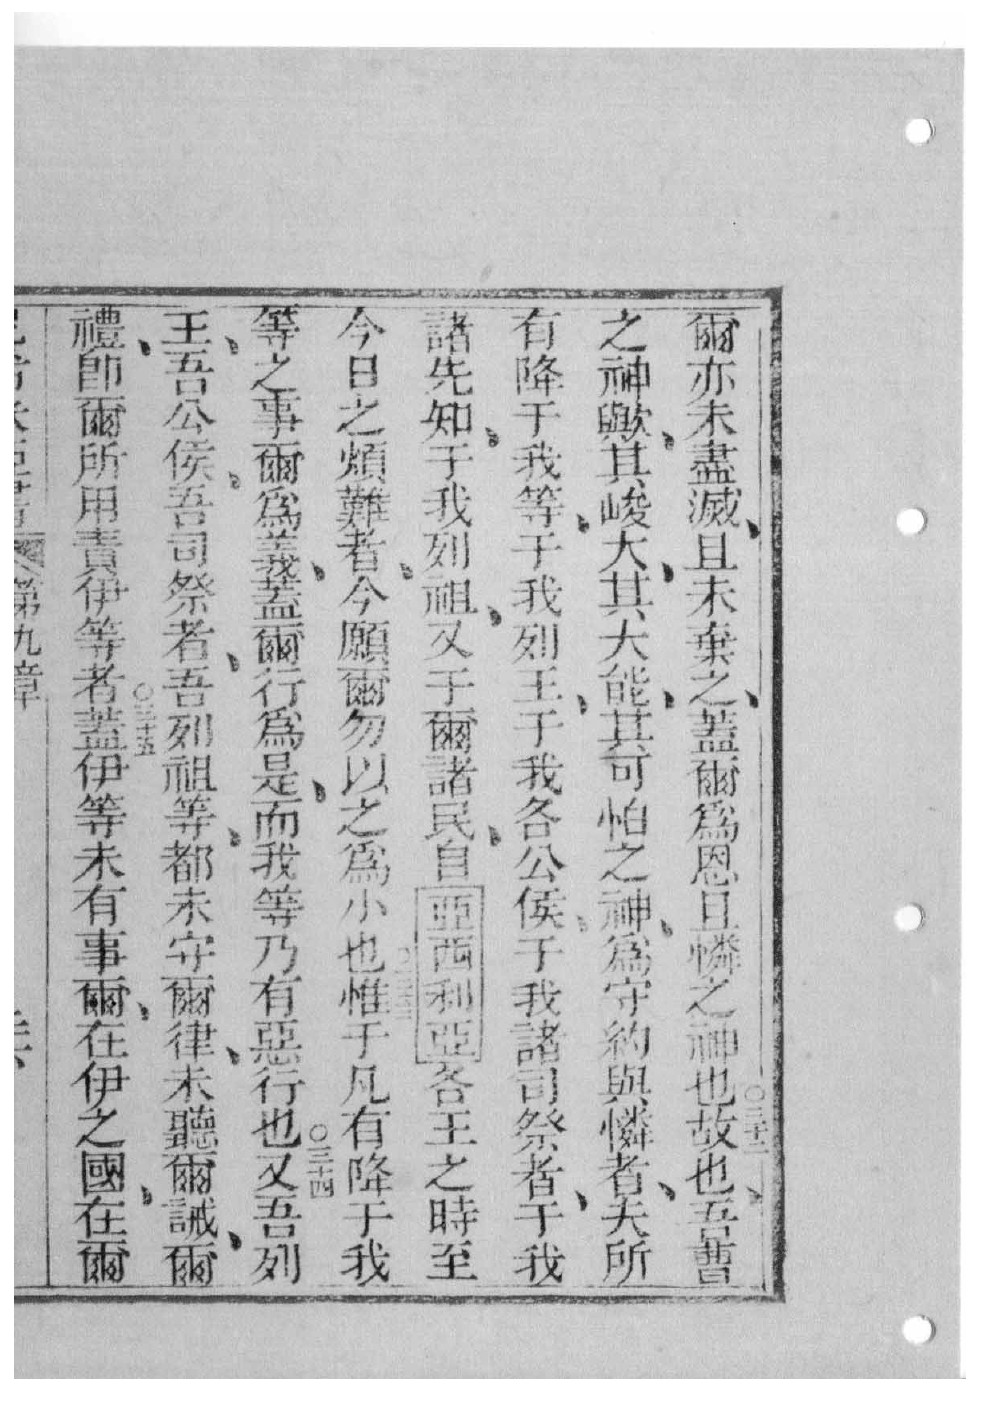 爾亦未盡滅、且未棄之、蓋爾爲恩且憐之神也○三十二故也、吾曹
之神歟、其峻大、其大能、其可怕之神、爲守約與憐者、夫所
有降于我等、于我列王、于我各公侯、于我諸司祭者、于我
諸先知、于我列祖、又于爾諸民、自亞西利亞各王之時至
今日之煩難者、今願爾勿以之爲小也○三十三惟于凡有降于我
等之事爾爲義、蓋爾行爲是、而我等乃有惡行也○三十四又吾列
王、吾公侯、吾司祭者、吾列祖等、都未守爾律、未聽爾誡、爾
禮、卽爾所用責伊等者○三十五蓋伊等未有事爾、在伊之國、在爾
第九章